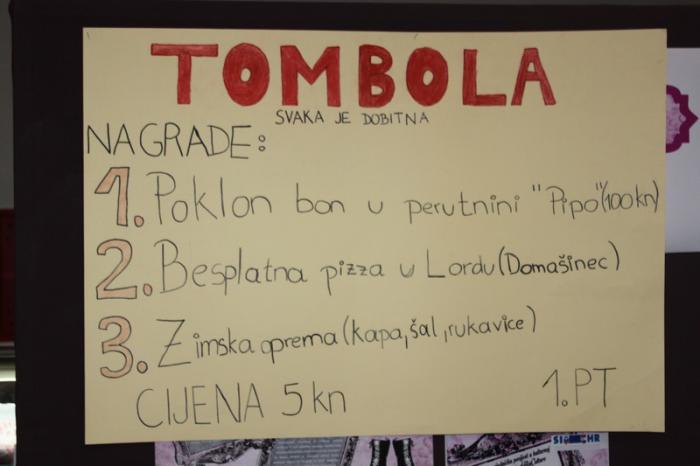 TOMBOLA
SVAKA JE DOBITNA
NAGRADE:
1. Poklon bon u perutnini "Pipo"(100kn)
2. Besplatna pizza u Lordu (Domašinec)
3. Zimska oprema (kapa, šal, rukavice)
CIJENA 5 kn
1. PT
HR